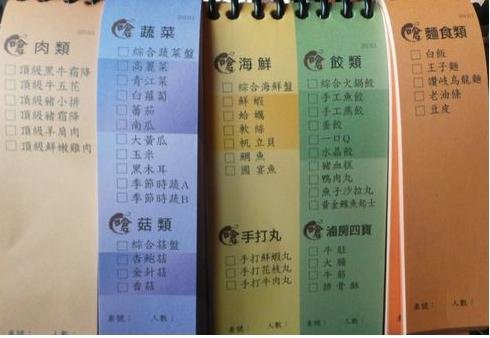 嗆
肉類
頂級黑牛霜降
頂級牛五花
頂級豬小排
頂級豬霜降
頂級羊肩肉
頂級鮮嫩雞肉
嗆
蔬菜
綜合蔬菜盤
高麗菜
青江菜
白蘿蔔
蕃茄
南瓜
大黃瓜
玉米
黑木耳
季節時蔬A
季節時蔬B
嗆
菇類
綜合菇盤
杏鮑菇
金針菇
香菇
桌號：
人數：
嗆
海鮮
綜合海鮮盤
鮮蝦
蛤蠣
軟絲
帆立貝
鯛魚
國宴魚
嗆
手打丸
手打鮮蝦丸
手打花枝丸
手打牛肉丸
桌號：
人數：
嗆
餃類
綜合火鍋餃
手工魚餃
手工燕餃
蛋餃
一口Q
水晶餃
豬血糕
鴨肉丸
魚子沙拉丸
黃金鱈魚起士
嗆
滷房四寶
牛肚
大腸
牛筋
排骨酥
桌號：
人數：
嗆
麵食類
白飯
王子麵
讚岐烏龍麵
老油條
豆皮
桌號：
人數：